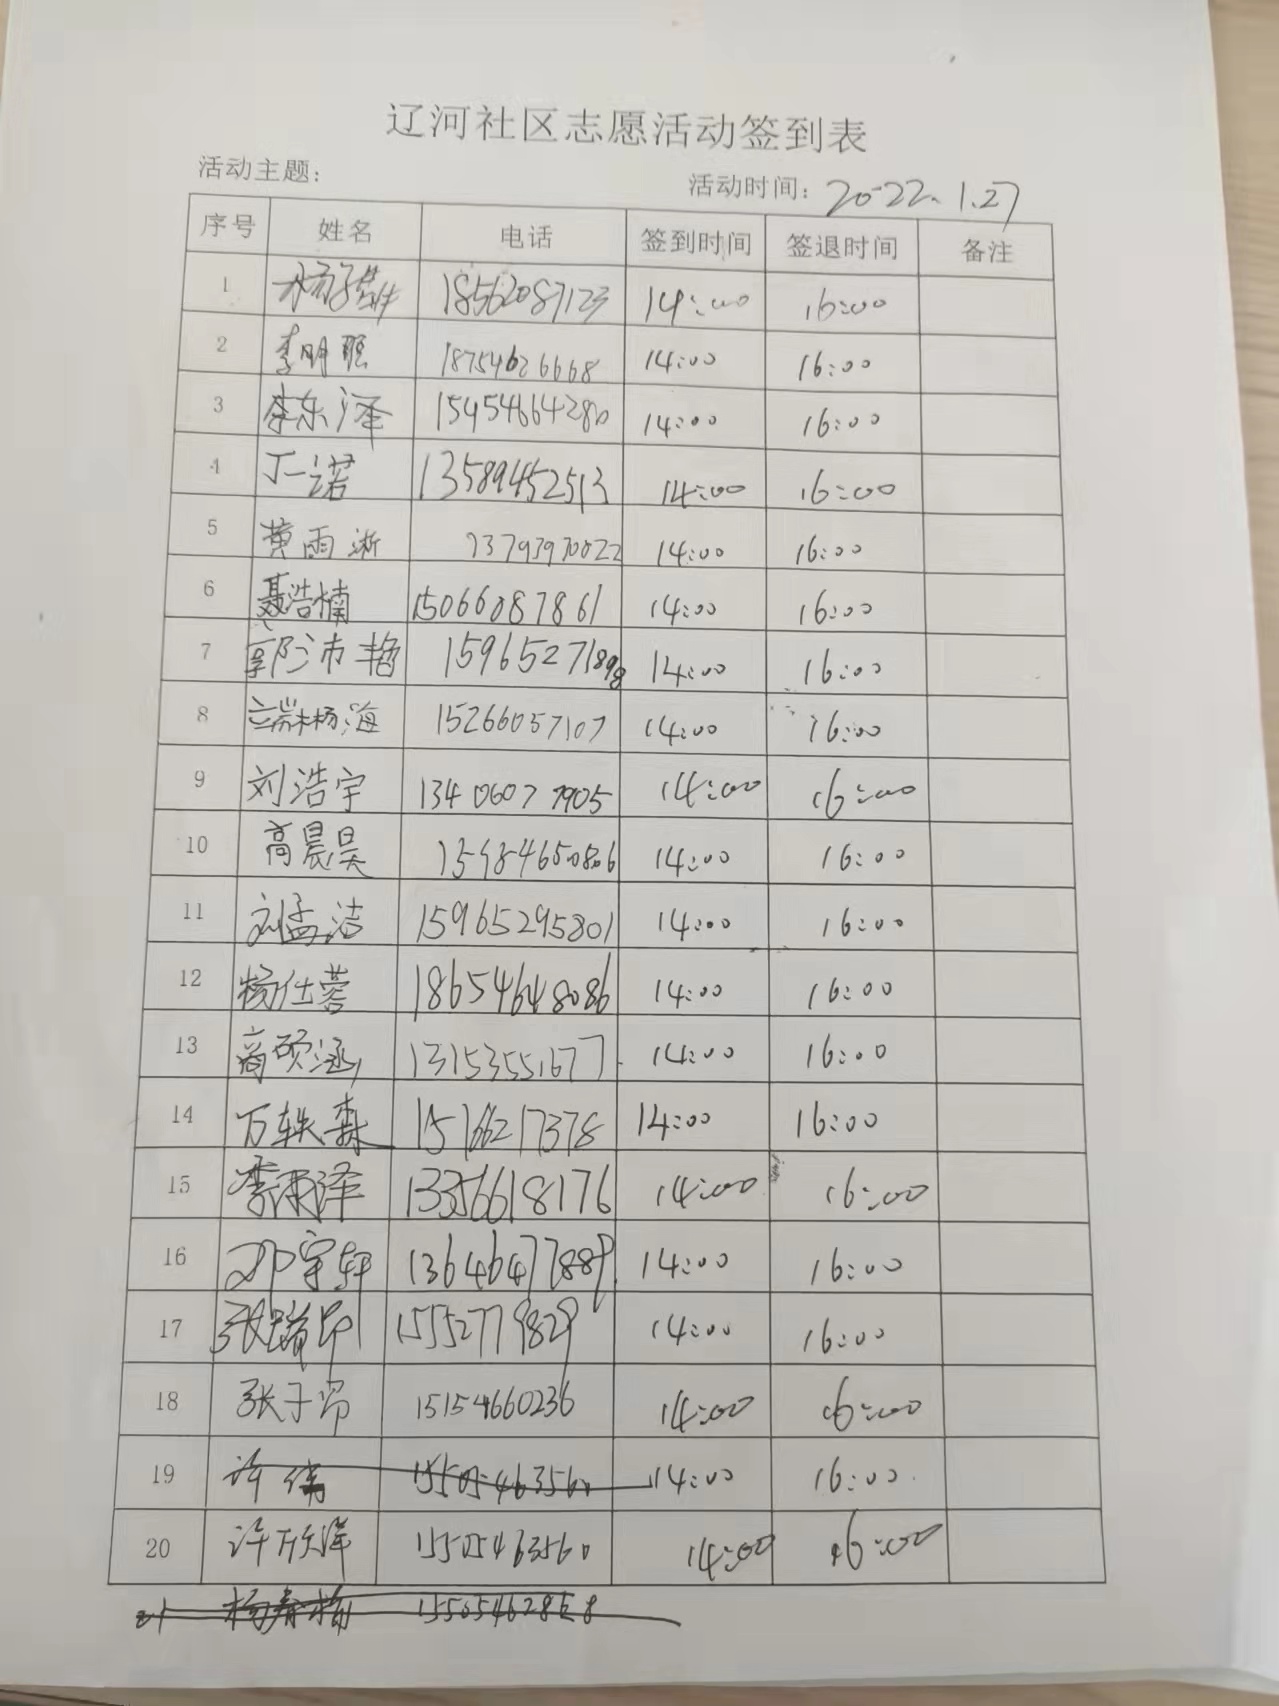 辽河社区志愿活动签到表
活动主题: 活动时间: 2022.1.27
序号 姓名 电话 签到时间 签退时间 备注
1 18562087123 14:00 16:00
2 李明聪 18754626668 14:00 16:00
3 李东泽 15454664280 14:00 16:00
4 丁一诺 13589452513 14:00 16:00
5 黄雨淅 13793970022 14:00 16:00
6 聂浩楠 15066087861 14:00 16:00
7 郭沛艳 15965271898 14:00 16:00
8 端木杨海 15266057107 14:00 16:00
9 刘浩宇 13406077905 14:00 16:00
10 高晨昊 14:00 16:00
11 刘孟洁 15965295801 14:00 16:00
12 杨仕蓉 18654648086 14:00 16:00
13 商硕涵 13153551677 14:00 16:00
14 万轶森 15166217378 14:00 16:00
15 李雨泽 13356618176 14:00 16:00
16 邓宇轩 13646477889 14:00 16:00
17 张瑞昂 15552779829 14:00 16:00
18 张子昂 15154660236 14:00 16:00
19 许 15505463560 14:00 16:00
20 许欣洋 15505463560 14:00 16:00
21 杨春梅